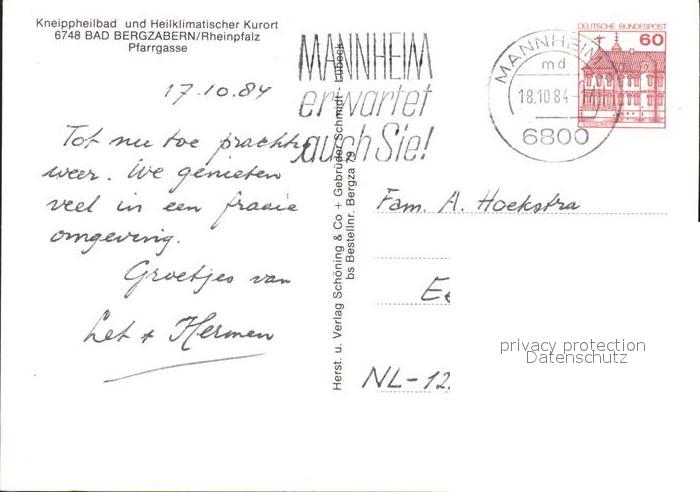 Kneippheilbad und Heilklimatischer Kurort
6748 BAD BERGZABERN/Rheinpfalz
Pfarrgasse
17.10.84
Tot nu toe prachtig
weer. We genieten
veel in een fraaie
omgeving.
Groetjes van
Let + Hermen
MANNHEIM
erwartet
auch Sie!
Herst. u. Verlag Schöning & Co + Gebrüder Schmidt - Lübeck
bs Bestellnr. Bergza 79
MANNHEIM
md
18.10.84
6800
DEUTSCHE BUNDESPOST
60
Fam. A. Hoekstra
NL-12
privacy protection
Datenschutz